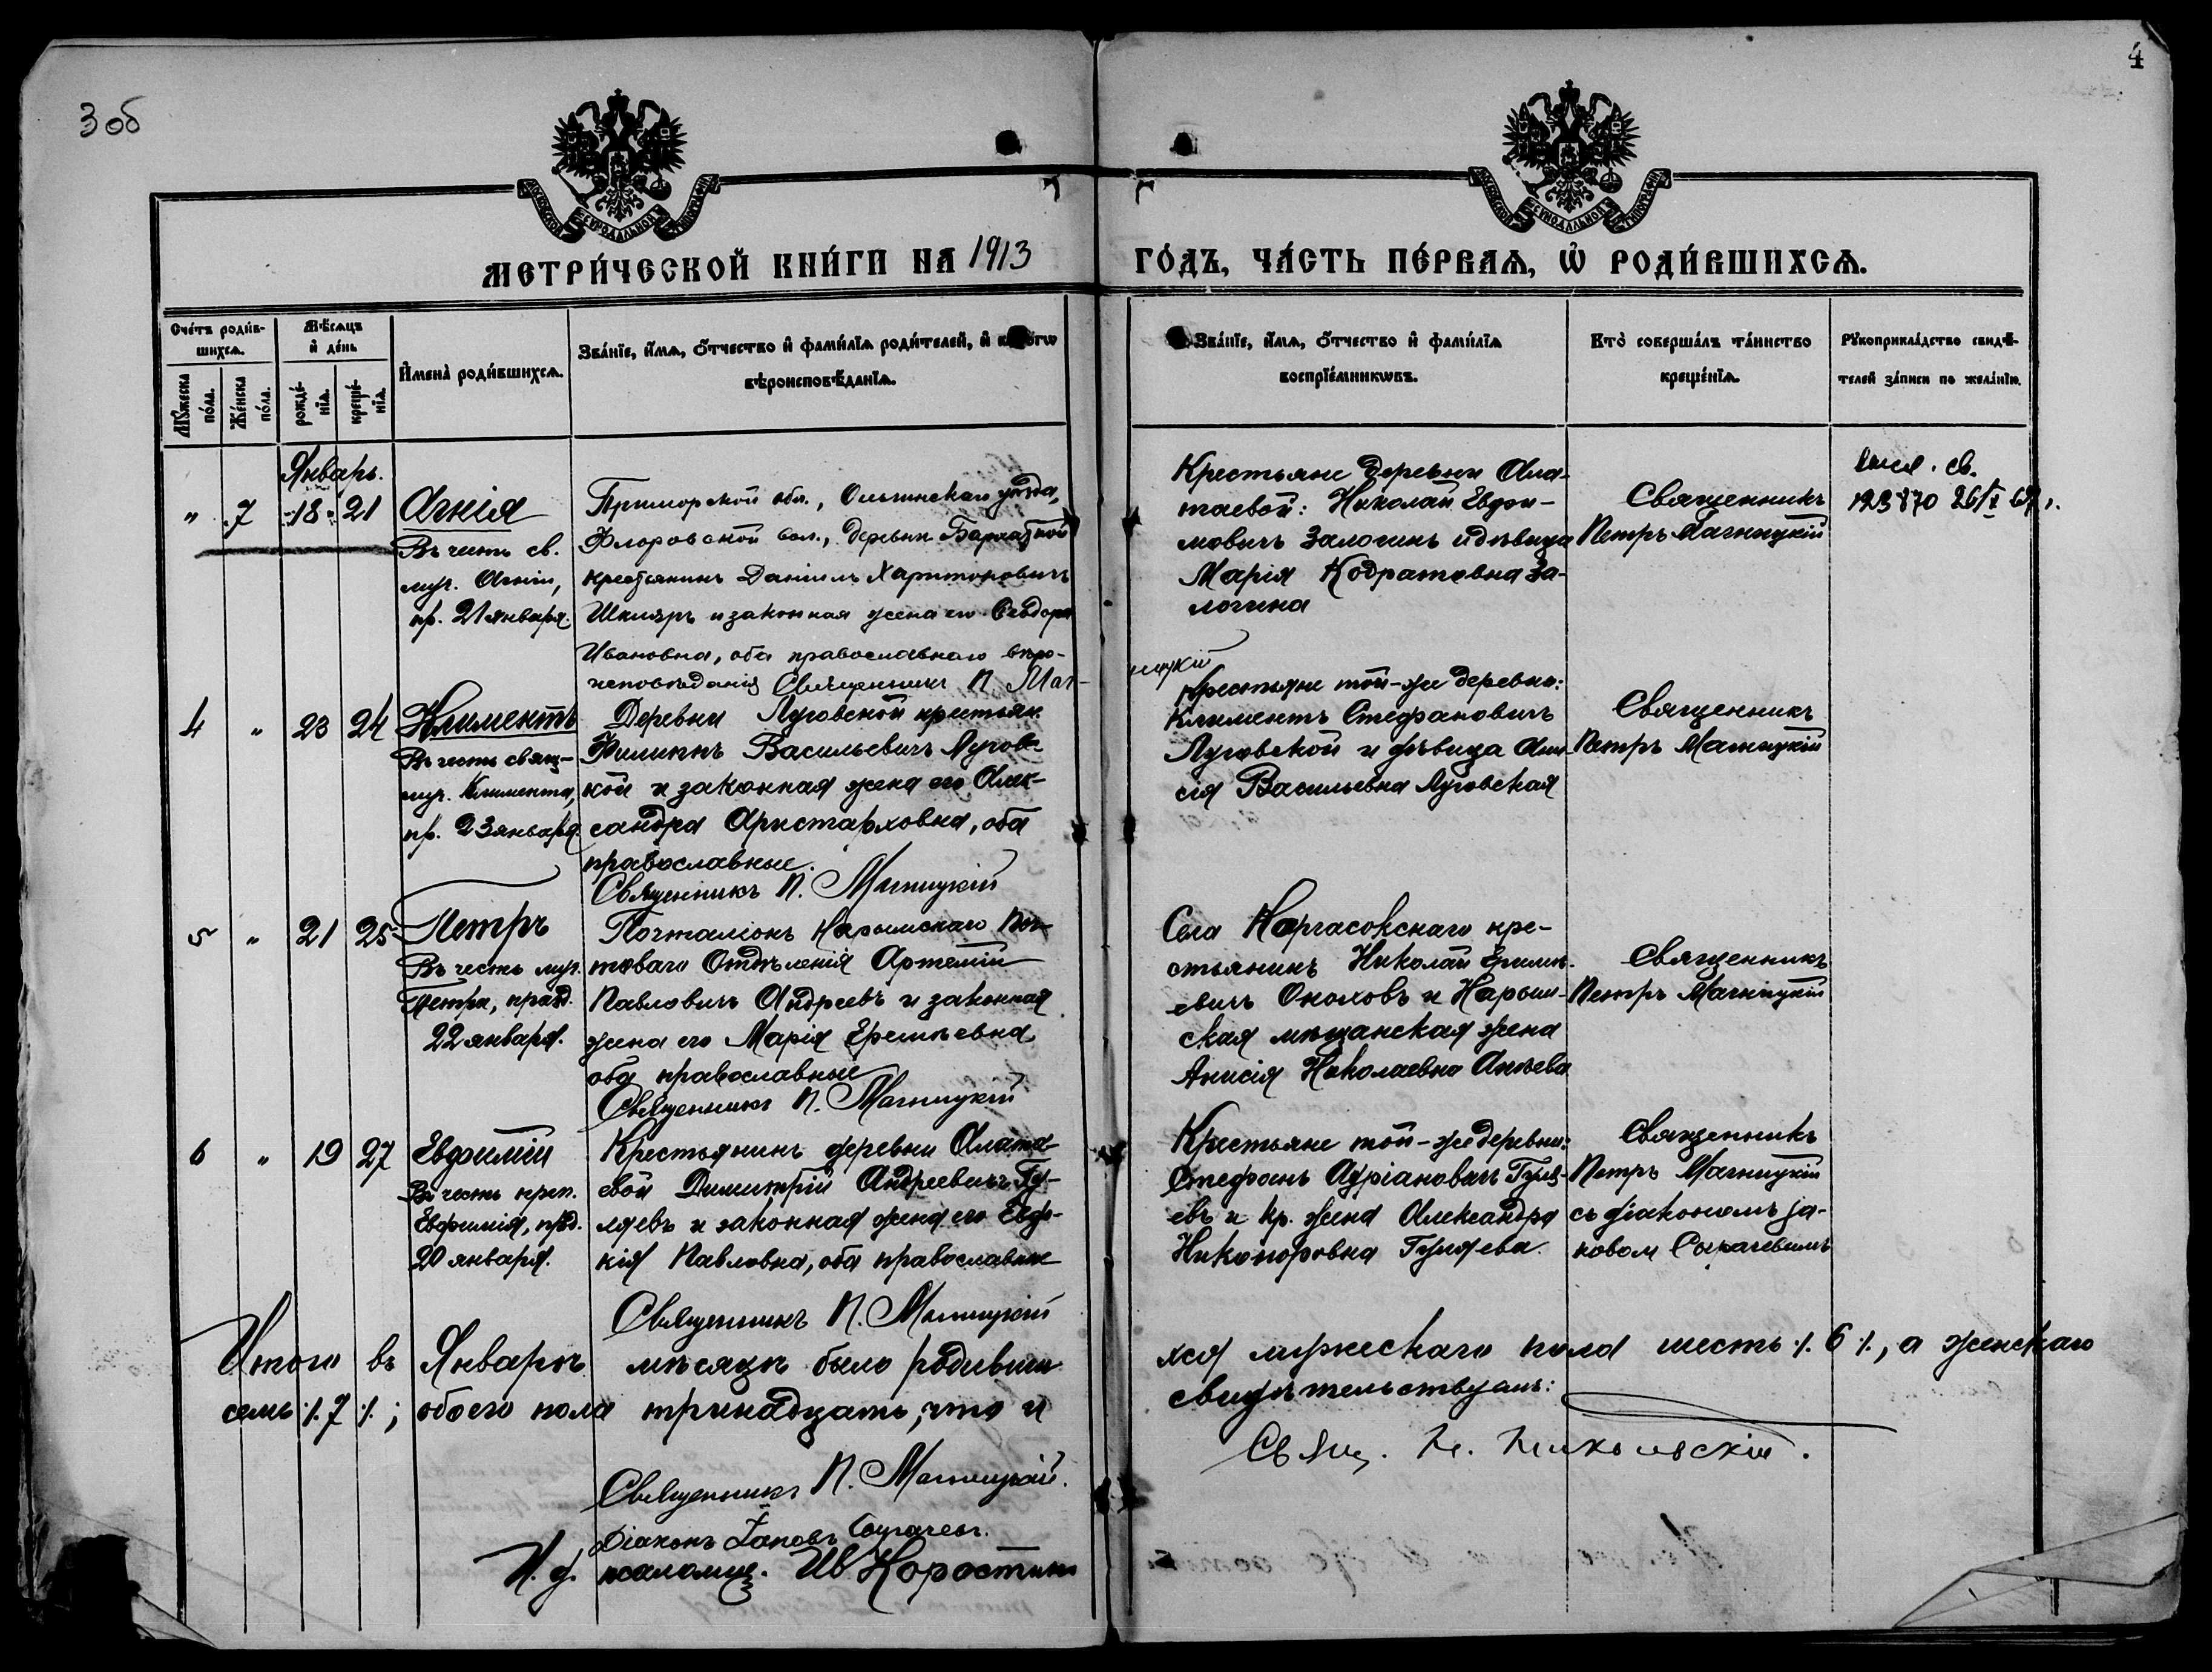 3 об
4
МЕТРИ́ЧЕСКОЙ КНИ́ГИ НА 1913 ГО́ДЪ, ЧА́СТЬ ПЕ́РВАѦ, Ѽ РОДИ́ВШИХСѦ.
Сче́тъ роди́в-
шихсѧ.
Мꙋ́жеска по́ла.
Же́нска по́ла.
Мѣ́сѧцъ
и҆ де́нь
рожде́-
нїѧ.
креще́-
нїѧ.
И҆мена̀ роди́вшихсѧ.
Зва́нїе, и҆́мѧ, ѻ҆́тчество и҆ фами́лїѧ роди́телей, и҆
вѣроисповѣ́данїѧ.
Зва́нїе, и҆́мѧ, ѻ҆́тчество и҆ фами́лїѧ
воспрїе́мникѡвъ.
Кто̀ соверша́лъ та́инство
креще́нїѧ.
Рꙋкоприкла́дство свидѣ́-
телей за́писи по жела́нїю.
Январь.
" 7 18 21
Агнія
Въ честь св.
муч. Агніи,
пр. 21 января.
Приморской обл., Ольгинскаго уѣзда,
Флоровской вол., деревни Бархатной
крестьянинъ Даніилъ Харитоновичъ
Шкляръ и законная жена его Ѳеодора
Ивановна, оба православнаго вѣро-
исповѣданія Священникъ П. Маг-
ницкій
Крестьяне деревни Ала-
таевой: Николай Евдои-
мовичъ Залогинъ и дѣвица
Марія Кодратовна За-
логина
Священникъ
Петръ Магницкій
св.
123870 26/
4 " 23 24
Климентъ
Въ честь свящ-
муч. Климента,
пр. 23 января
Деревни Луговской крестьян.
Филиппъ Васильевичъ Лугов-
кой и законная жена его Алек-
сандра Аристарховна, оба
православные.
Священникъ П. Магницкій
Крестьяне той-же деревни:
Климентъ Стефановичъ
Луговской и дѣвица Ани-
сія Васильевна Луговская
Священникъ
Петръ Магницкій
5 " 21 25
Петръ
Въ честь муч.
Петра, празд.
22 января.
Почталіонъ Нарымскаго Поч-
товаго Отдѣленія Артемій
Павловичъ Андреевъ и законная
жена его Марія Еремѣевна
оба православные
Священникъ П. Магницкій
Села Каргасокскаго кре-
стьянинъ Николай Еремѣ-
евичъ Окоховъ и Нарым-
ская мѣщанская жена
Анисія Николаевна
Священникъ
Петръ Магницкій
6 " 19 27
Евфимій
Въ честь преп.
Евфимія, прзд.
20 января.
Крестьянинъ деревни Алата-
евой Димитрій Андреевичъ Гу-
ляевъ и законная жена его Евдо-
кія Павловна, оба православные
Священникъ П. Магницкій
Крестьяне той-же деревни:
Стефанъ Адріановичъ Гуля-
евъ и кр. жена Александра
Никаноровна Гуляева.
Священникъ
Петръ Магницкій
съ діакономъ Іа-
ковом Сыгачевымъ
Итого въ Январѣ мѣсяцѣ было родивши-
хся мужескаго пола шесть ./. 6 ./., а женскаго
семь ./. 7 ./.; обоего пола тринадцать, что и
свидѣтельствуемъ:
Священникъ П. Магницкій.
Діаконъ Іаковъ
И. д. псаломщ. Ив Коростинъ
Свящ. Никольскій.